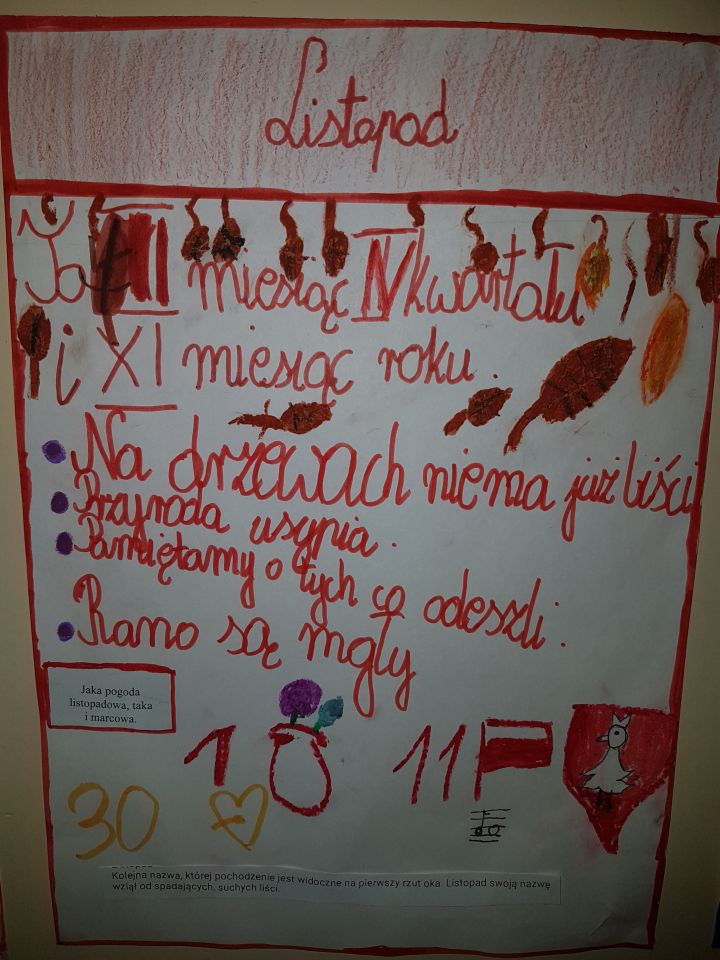 Listopad
To II miesiąc IV kwartału
i XI miesiąc roku.
Na drzewach niema już liści
Przyroda usypia.
Pamiętamy o tych co odeszli.
Rano są mgły
Jaka pogoda
listopadowa, taka
i marcowa.
1 11
30
Kolejna nazwa, której pochodzenie jest widoczne na pierwszy rzut oka. Listopad swoją nazwę
wziął od spadających, suchych liści.